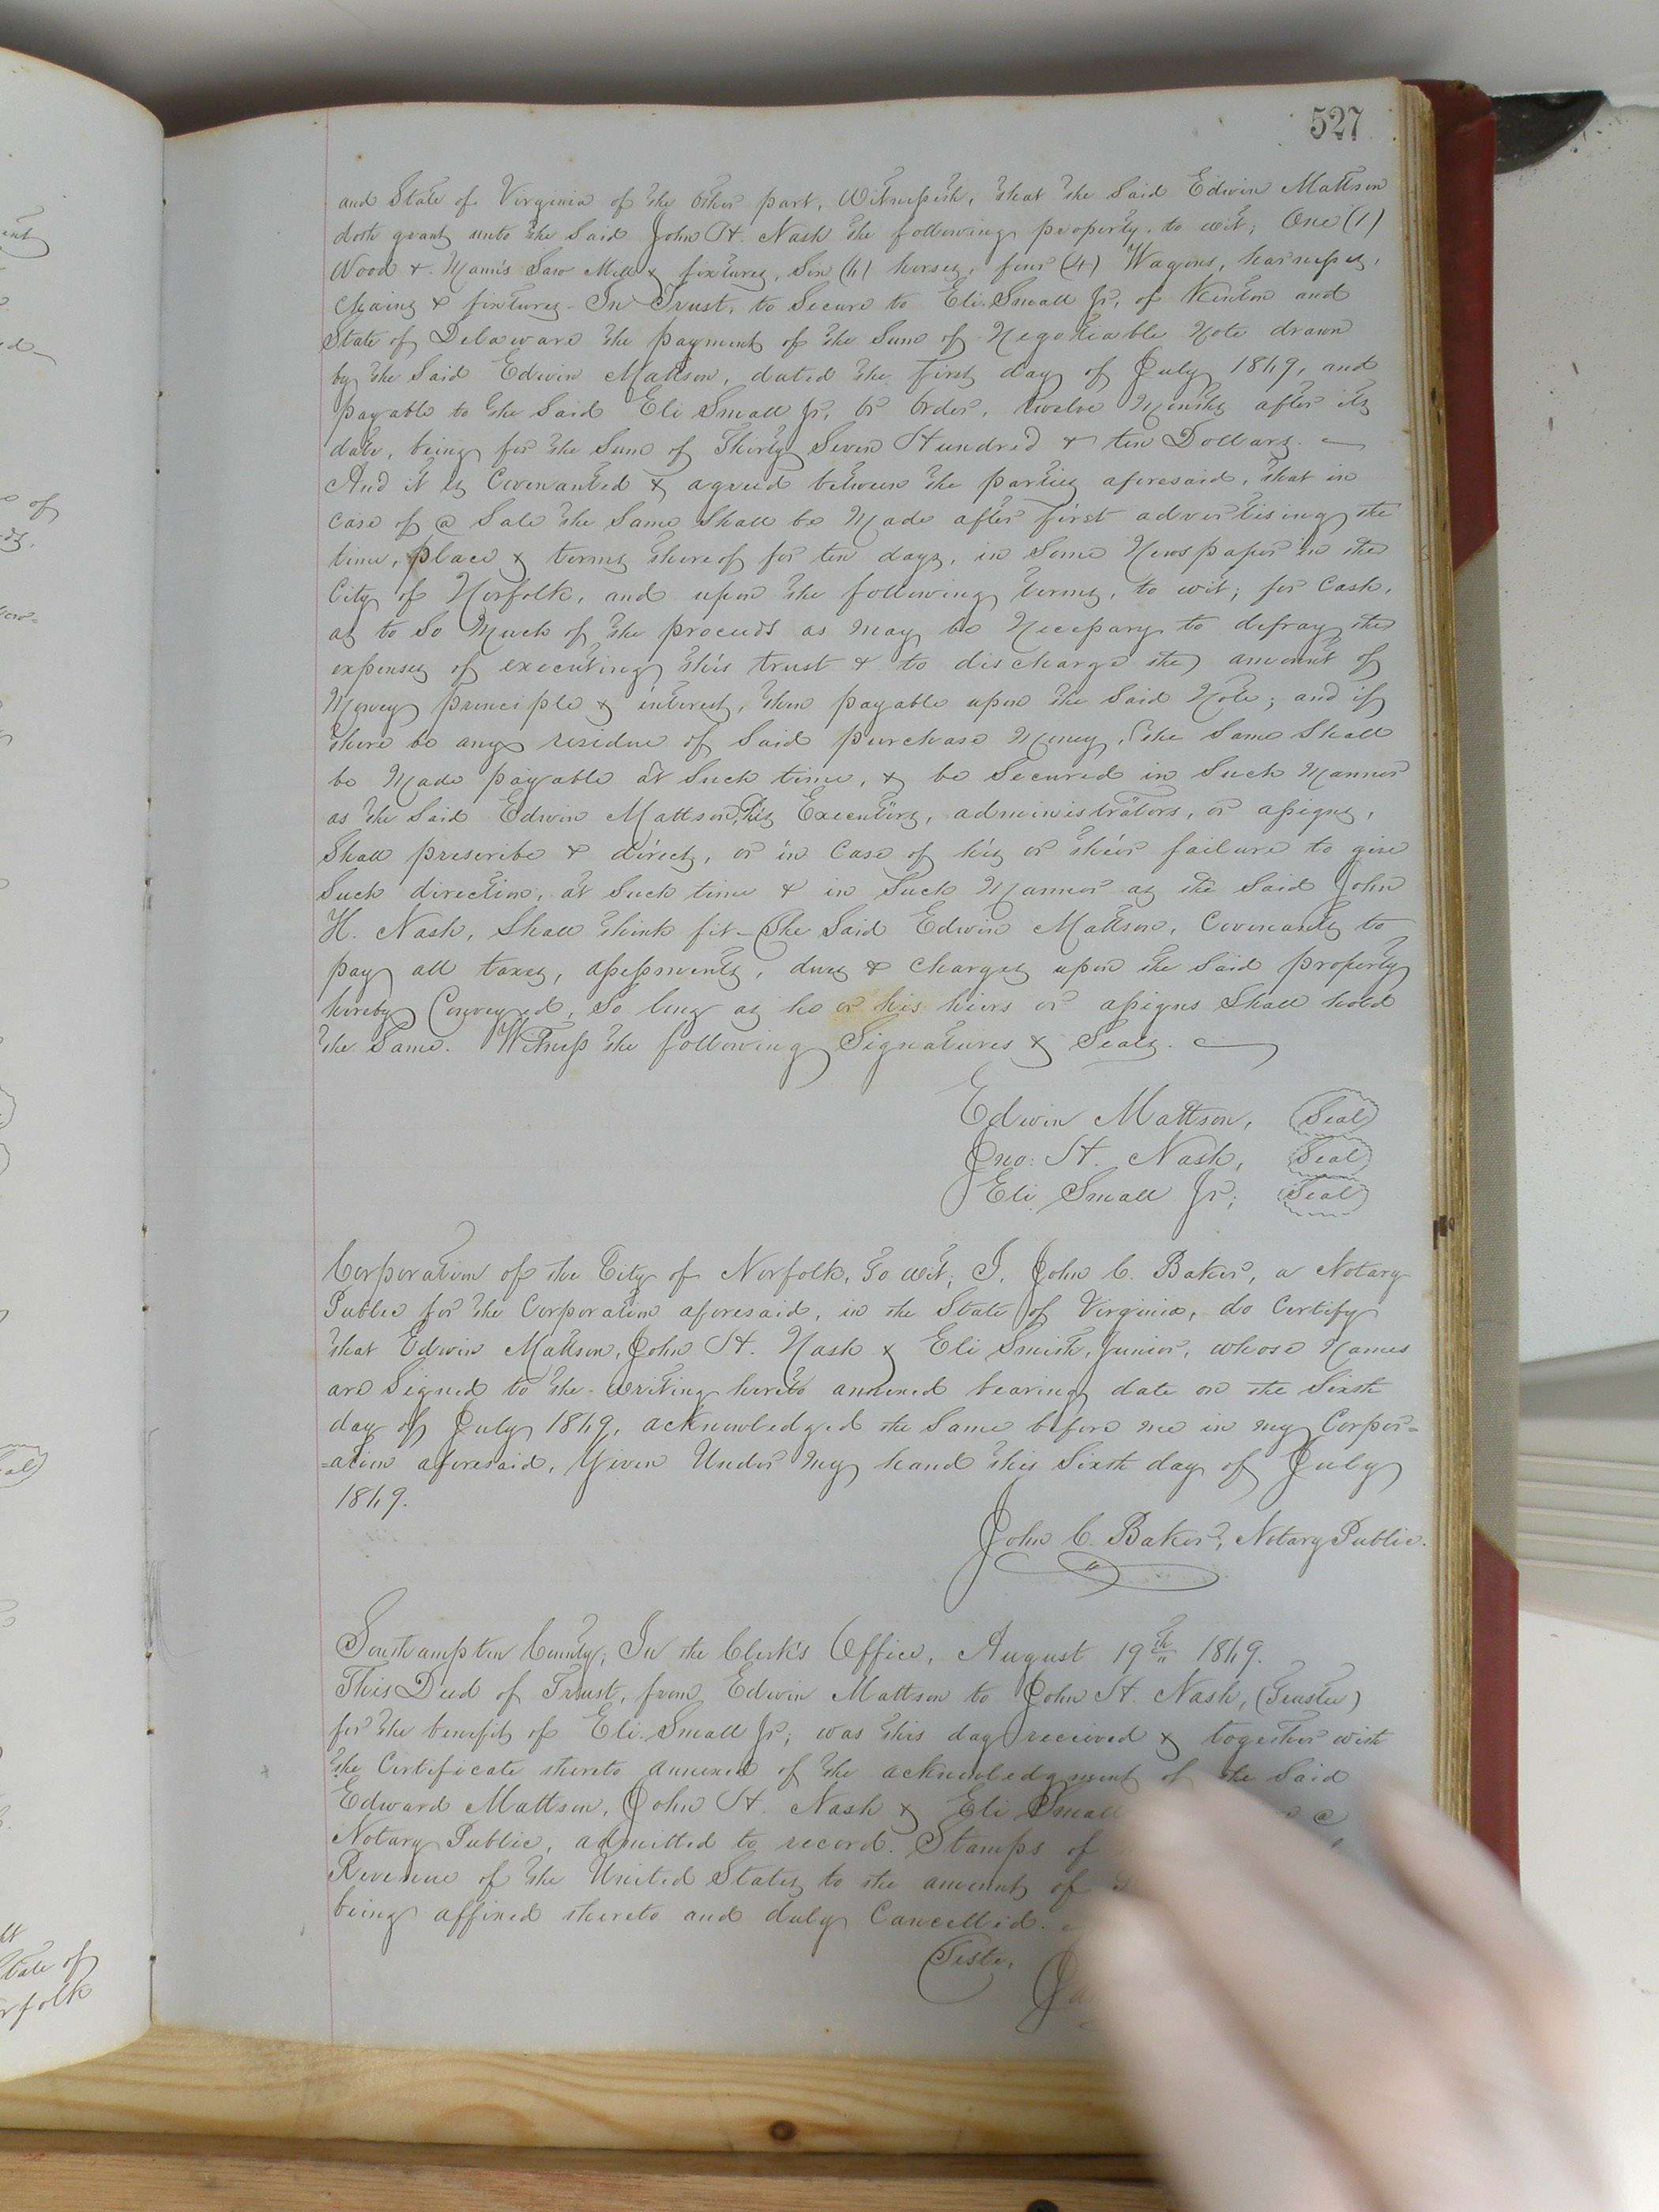 527
and State of Virginia of the other part, Witnesseth, that the Said Edwin Mattson
doth grant unto the Said John H. Nash the following property, to wit; One (1)
Wood & Mann's Saw Mill & fixtures, Six (6) horses, four (4) Wagons, harnesses,
Chains & fixtures - In Trust, to Secure to Eli Small Jr, of Kenton and
State of Delaware the payment of the Sum of Negotiable Note drawn
by the Said Edwin Mattson, dated the first day of July 1869, and
payable to the Said Eli Small Jr, or order, twelve Months after its
date, being for the Sum of Thirty Seven Hundred & ten Dollars.
And it is Covenanted & agreed between the parties aforesaid, that in
Case of a Sale the Same Shall be Made after first advertising the
time, place & terms thereof for ten days, in Some Newspaper in the
City of Norfolk, and upon the following terms, to wit; for Cash,
as to So Much of the proceeds as may be Necessary to defray the
expenses of executing this trust & to discharge the amount of
Money principle & interest, then payable upon the Said Note; and if
there be any residue of Said purchase Money, the Same Shall
be Made payable at Such time, & be Secured in Such Manner
as the Said Edwin Mattson, his Executors, administrators, or assigns,
Shall prescribe & direct, or in Case of his or their failure to give
Such direction, at Such time & in Such Manner as the Said John
H. Nash, Shall think fit - The Said Edwin Mattson, Covenants to
pay all taxes, assessments, dues & Charges upon the Said property
hereby Conveyed, So long as he or his heirs or assigns Shall hold
the Same. Witness the following Signatures & Seals.
Edwin Mattson, Seal
Jno: H. Nash, Seal
Eli Small Jr; Seal
Corporation of the City of Norfolk, To wit; I, John C. Baker, a Notary
Public for the Corporation aforesaid, in the State of Virginia, do Certify
that Edwin Mattson, John H. Nash & Eli Smith, Junior, whose Names
are Signed to the writing hereto annexed bearing date on the Sixth
day of July 1869, acknowledged the Same before me in my Corpor=
=ation aforesaid, Given Under My hand this Sixth day of July
1869.
John C. Baker, Notary Public.
Southampton County; In the Clerk's Office, August 19th 1869.
This Deed of Trust, from Edwin Mattson to John H. Nash, (Trustee)
for the benefit of Eli Small Jr; was this day recieved & together with
the Certificate thereto annexed of the acknowledgment of the Said
Edward Mattson, John H. Nash & Eli Small a
Notary Public, admitted to record. Stamps of
Revenue of the United States to the amount of
being affixed thereto and duly Cancelled.
Teste,